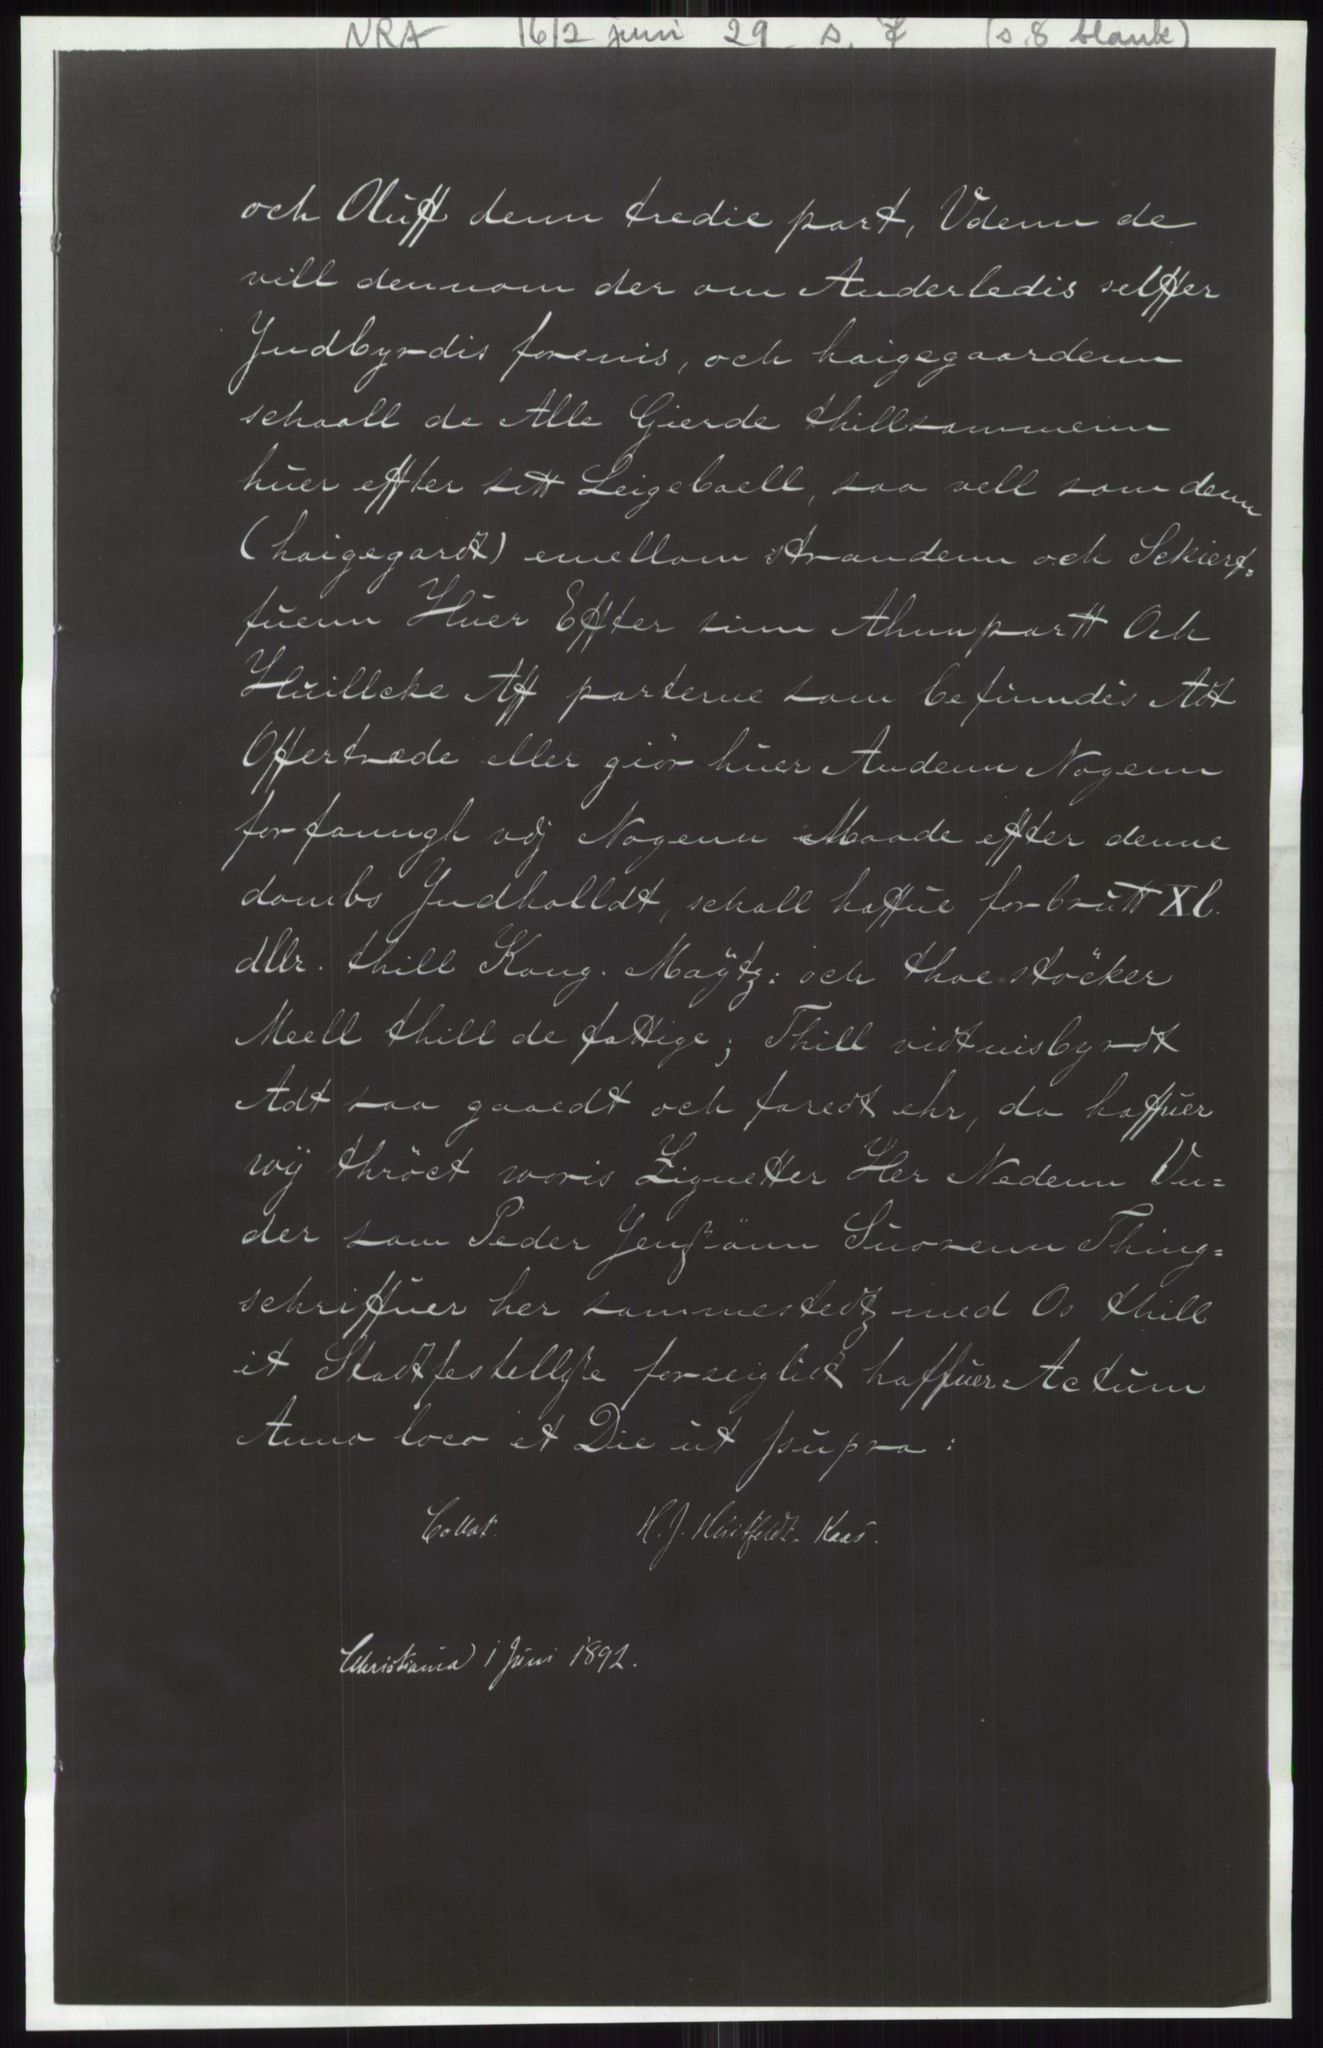 NRA 1612 juni 29 s. 7 (s. 8 blank)
och Oluff denn tredie part, Vdenn de
vill dennom der om Anderledis selffer
Jndbyrdis forenis, och haigegaardenn
schaall de Alle Gierde thillsammenn
huer effter sitt Leigebaell, saa vell som denn
(haigegardt) emellom strandenn och Sckierf-
fuenn Huer Effter sinn Annpartt Och
Huillcke Aff parterne som befinndis Adt
Offertræde eller giör huer Andenn Nogenn
forfanngh vdj Nogenn Maade effter denne
dombs Jndholldt, schall haffue forbrutt XL.
dllr. thill Kong. Maÿtz: och thoe stöcker
Meell thill de fattige; Thill vidtnisbyrdt
Adt saa gaaedt och faredt ehr, da haffuer
wÿ thröct woris Zignetter Her Nedenn Vn=
der som Peder Jenßönn Suorenn Thing=
schriffuer her sammestedtz med Os thill
it Stadtfestellße forseiglidt haffuer Actum
Anno loco et Die ut supra:
Collat. H. J. Huitfeldt-Kaas.
Christiania 1 Juni 1892.